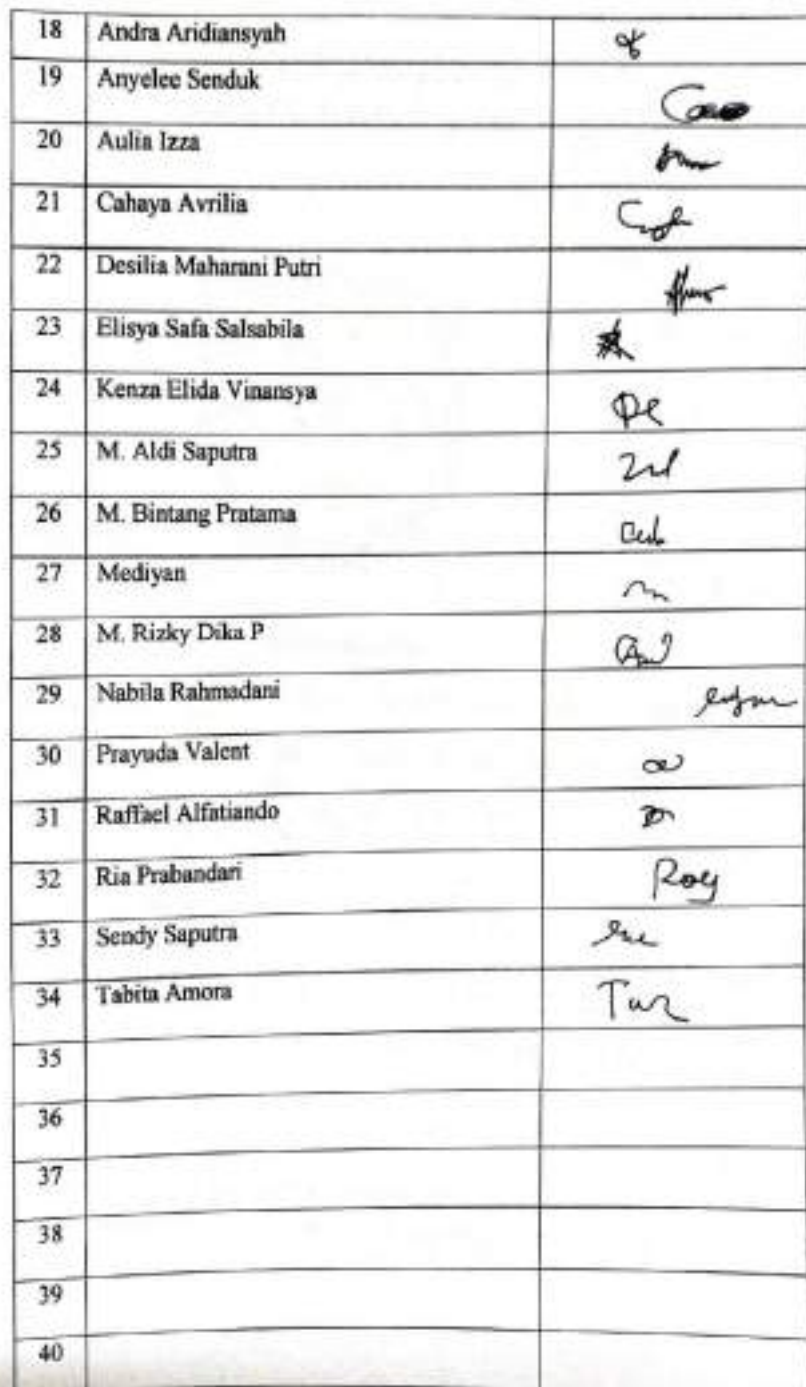 18 Andra Aridiansyah
19 Anyelee Senduk
20 Aulia Izza
21 Cahaya Avrilia
22 Desilia Maharani Putri
23 Elisya Safa Salsabila
24 Kenza Elida Vinansya
25 M. Aldi Saputra
26 M. Bintang Pratama
27 Mediyan
28 M. Rizky Dika P
29 Nabila Rahmadani
30 Prayuda Valent
31 Raffael Alfatiando
32 Ria Prabandari
33 Sendy Saputra
34 Tabita Amora
35
36
37
38
39
40